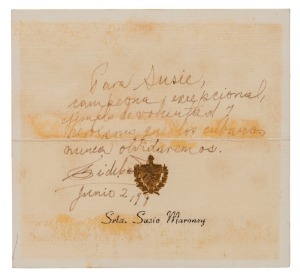 Para Susie,
campeona excepcional,
ejemplo de voluntad y
heroismo que los cubanos
nunca olvidaremos.
Fidel
Junio 2, 97
Srta. Susie Maroney